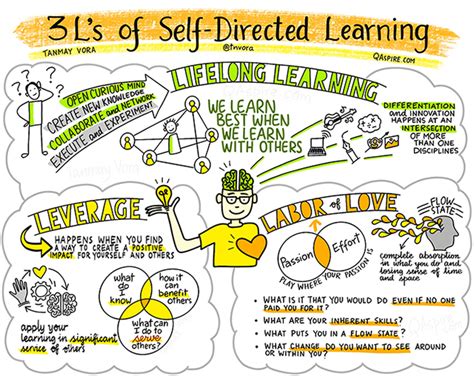 3 L's of Self-Directed Learning
TANMAY VORA
@tnvora
QASPIRE.COM
LIFELONG LEARNING
OPEN CURIOUS MIND
CREATE NEW KNOWLEDGE
COLLABORATE and NETWORK
EXECUTE and EXPERIMENT
WE LEARN
BEST WHEN
WE LEARN
WITH OTHERS
DIFFERENTIATION
and INNOVATION
HAPPENS AT AN
INTERSECTION
OF MORE
THAN ONE
DISCIPLINES
Tanmay Vora
LEVERAGE
HAPPENS WHEN YOU FIND
A WAY TO CREATE A POSITIVE
IMPACT FOR YOURSELF AND OTHERS
what
do I
know?
how it can
benefit
others
what can I
do to
serve
others?
apply your
learning in significant
service of others
LABOR of LOVE
Passion
Effort
PLAY WHERE YOUR PASSION IS
FLOW
STATE
complete absorption
in what you do and
losing sense of time
and space
WHAT IS IT THAT YOU WOULD DO EVEN IF NO ONE
PAID YOU FOR IT?
WHAT ARE YOUR INHERENT SKILLS?
WHAT PUTS YOU IN A FLOW STATE?
WHAT CHANGE DO YOU WANT TO SEE AROUND
OR WITHIN YOU?